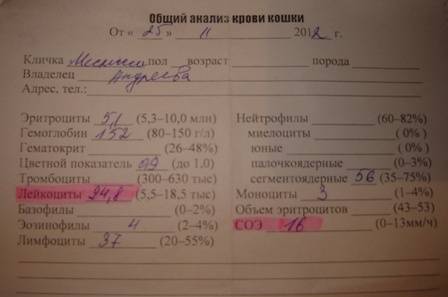 Общий анализ крови кошки
От « 25 » 11 2012 г.
Кличка пол возраст порода
Владелец Андреева
Адрес, тел.:
Эритроциты 5,1 (5,3–10,0 млн)
Гемоглобин 152 (80–150 г/л)
Гематокрит (26–48%)
Цветной показатель 0,9 (до 1.0)
Тромбоциты (300–630 тыс)
Лейкоциты 24,8 (5,5–18,5 тыс)
Базофилы (0–2%)
Эозинофилы 4 (2–4%)
Лимфоциты 37 (20–55%)
Нейтрофилы (60–82%)
миелоциты ( 0% )
юные ( 0% )
палочкоядерные (0–3%)
сегментоядерные 56 (35–75%)
Моноциты 3 (1–4%)
Объем эритроцитов (43–53)
СОЭ 16 (0–13мм/ч)